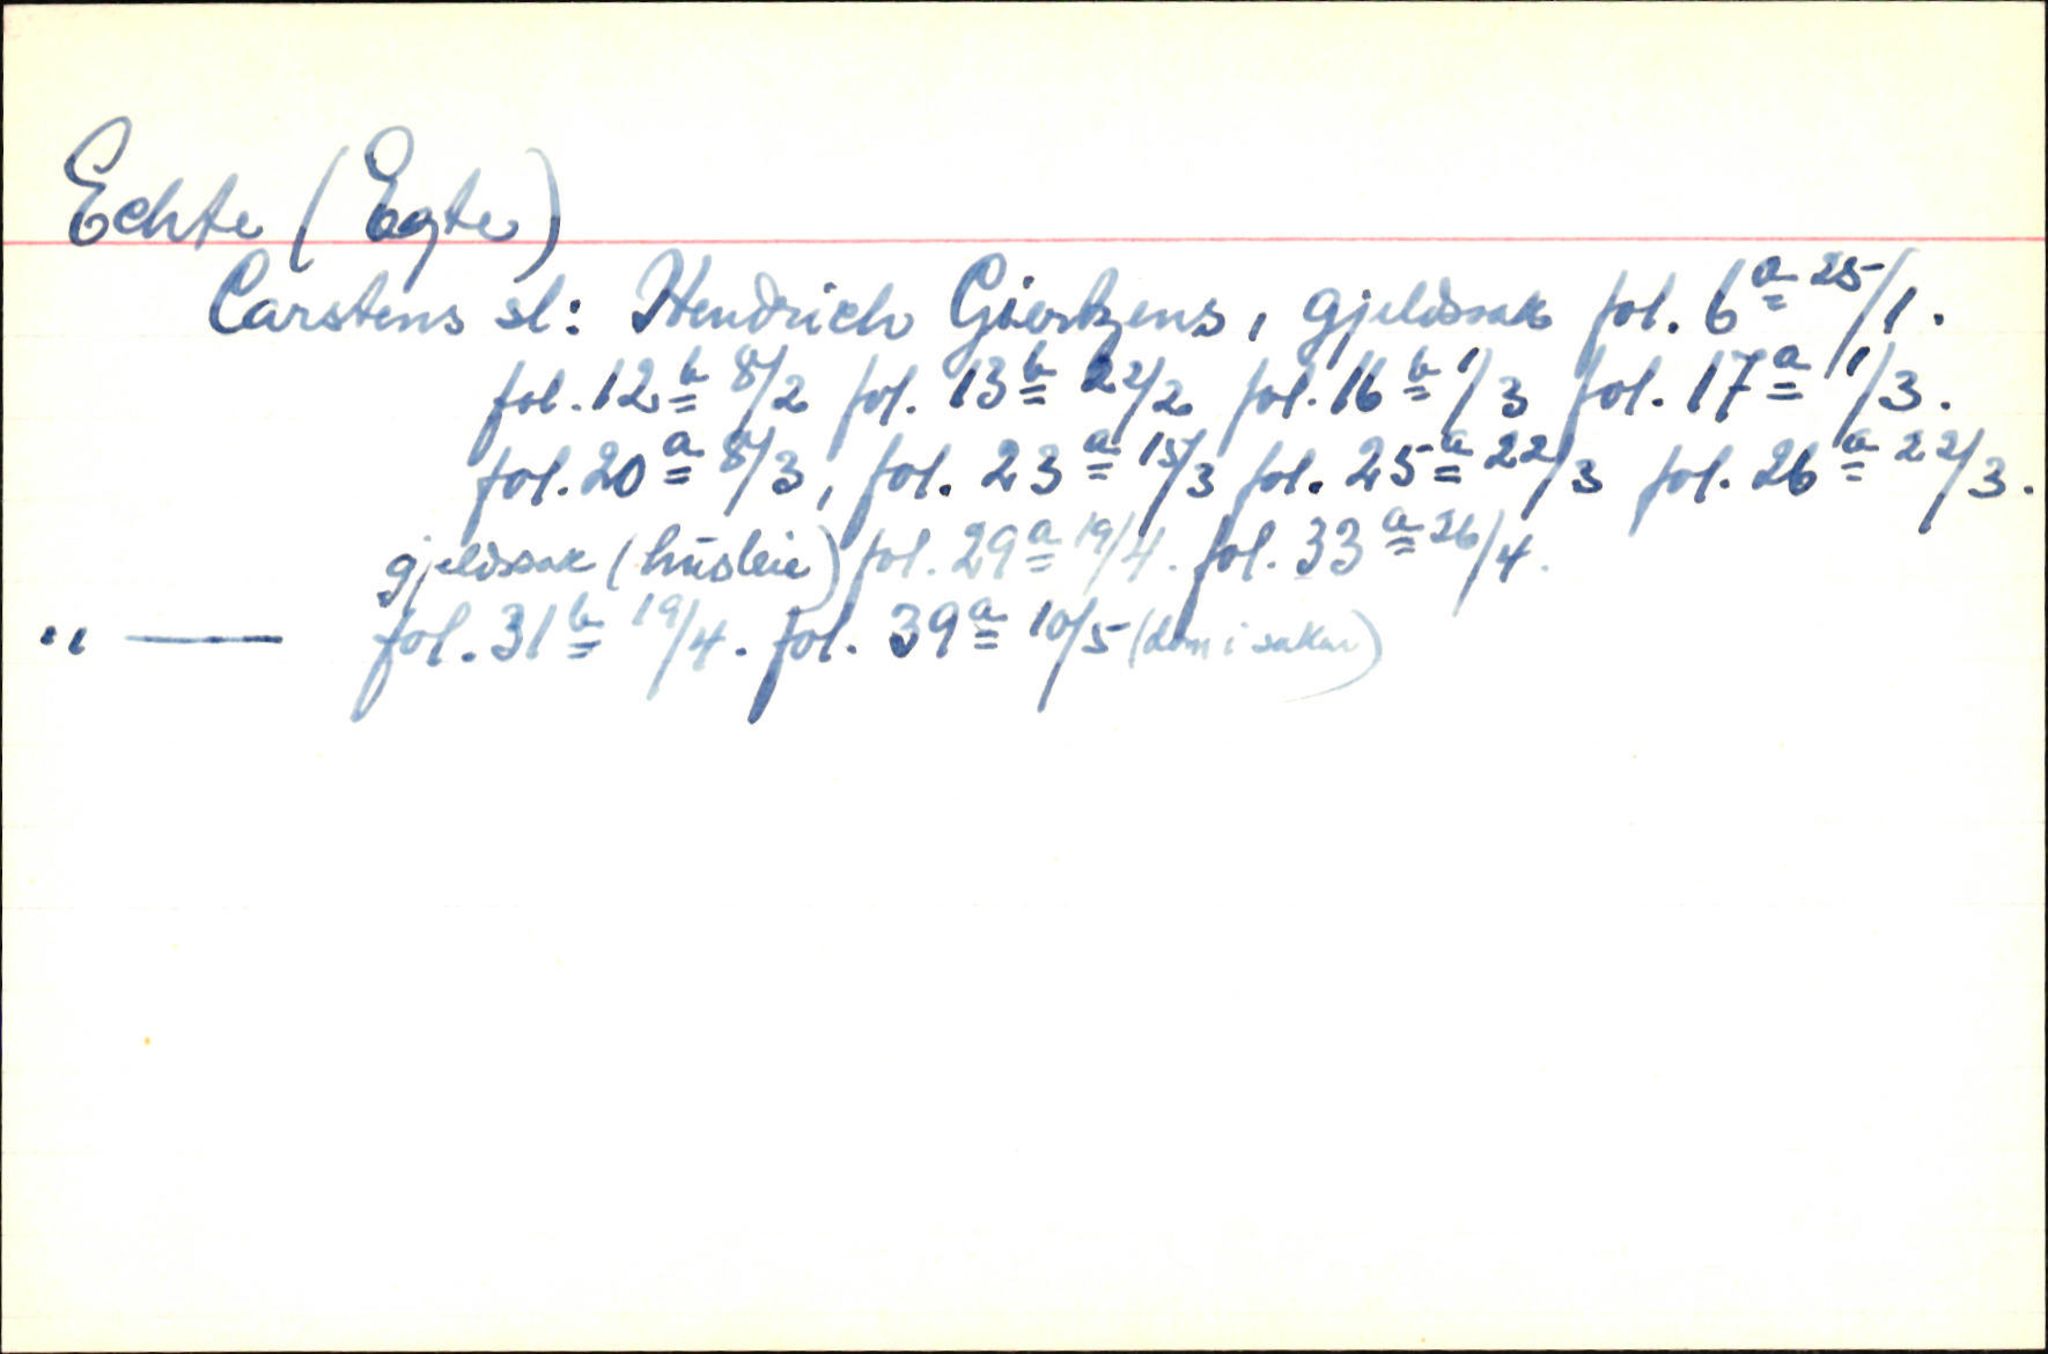 Echte (Egte)
Carstens sl: Hendrich Giertzens, gjeldssak fol. 6a 25/1.
fol. 12b 8/2 fol. 13b 22/2 fol. 16b 1/3 fol. 17a 1/3.
fol. 20a 8/3, fol. 23a 15/3 fol. 25a 22/3 fol. 26a 22/3.
gjeldssak (husleie) fol. 29a 19/4. fol. 33a 26/4.
" — fol. 31b 19/4. fol. 39a 10/5 (dom i saken)